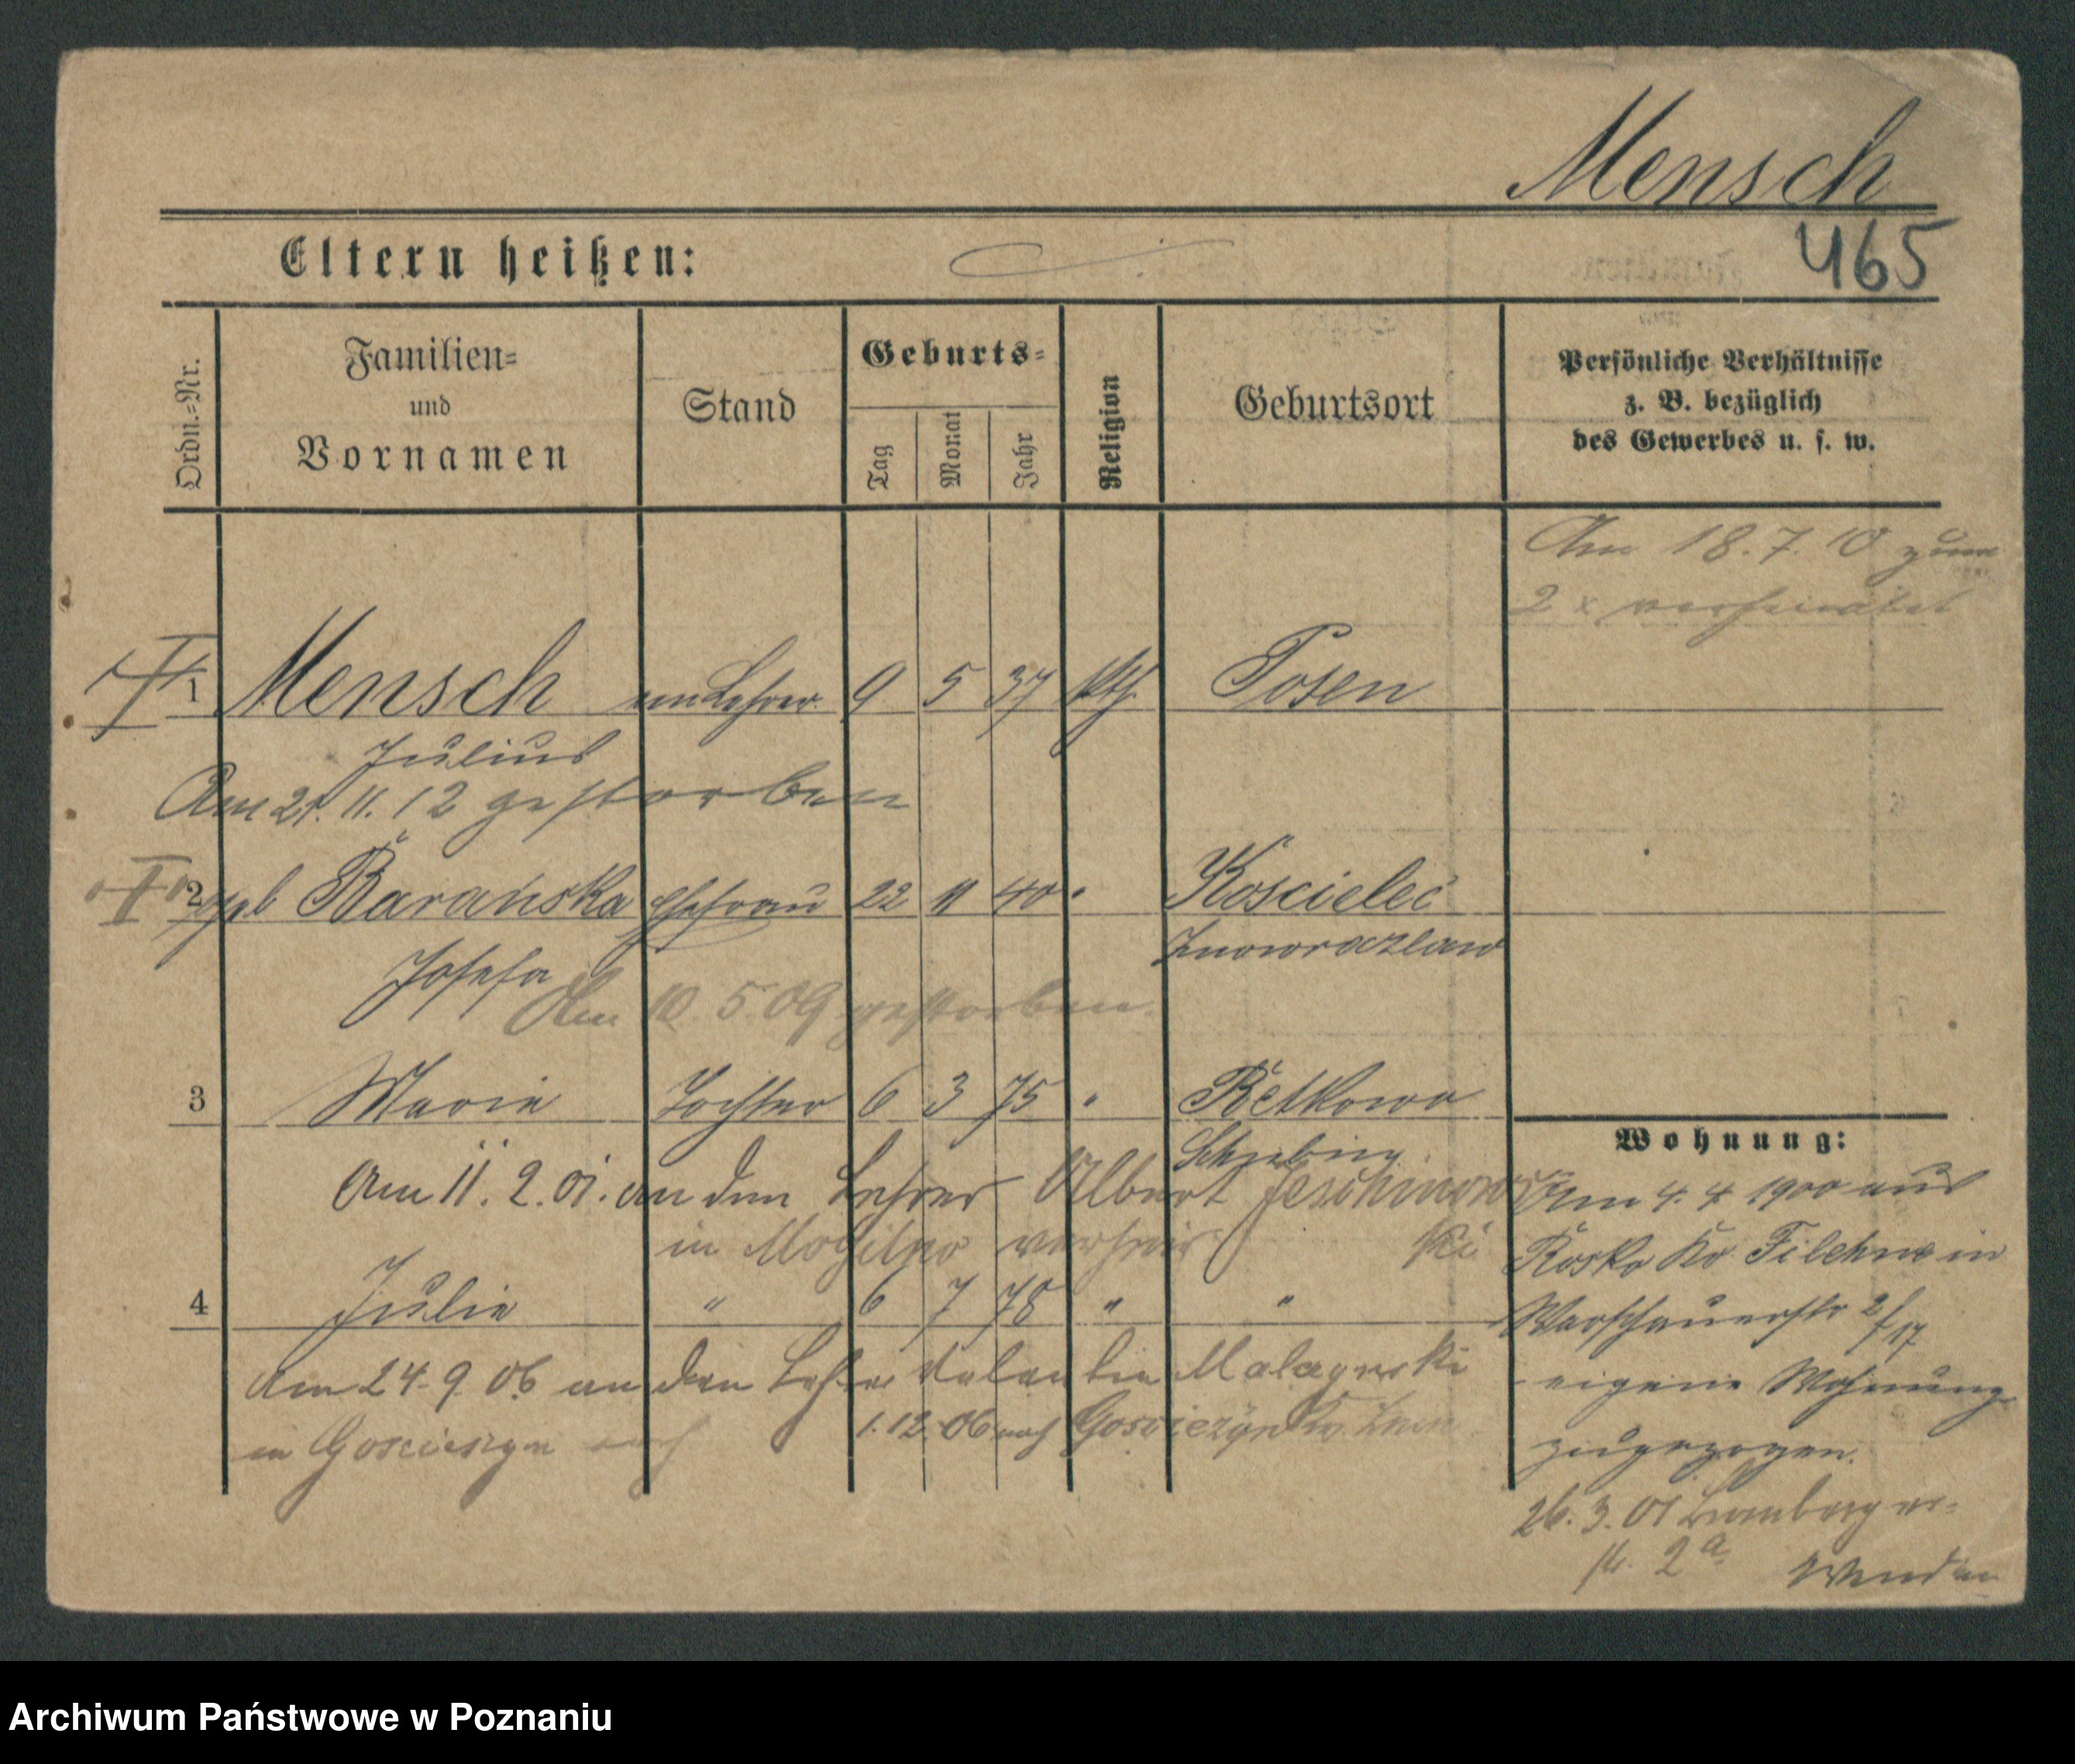 Mensch
465
Eltern heißen:
Ordn.=Nr.
Familien=
und
Vornamen
Stand
Geburts=
Tag
Monat
Jahr
Religion
Geburtsort
Persönliche Verhältnisse
z. B. bezüglich
des Gewerbes u. s. w.
Am 18.7.10 zum
2 x verheiratet
1 Mensch em Lehrer 9 5 37 kth Posen
Julius
Am 21.11.12 gestorben
2 geb Barańska Ehefrau 22 11 40 " Koscielec
Josefa Inowrazlaw
Am 10.5.09 gestorben.
3 Marie Tochter 6 3 75 " Retkowo
Schubin
Am 11.2.01. an den Lehrer Albert Jeschinows
in Mogilno verheir ki
4 Julie " 6 7 78 " "
Am 24.9.06 an den Lehrer Valentin
in Gosciesyn
1.12.06 nach
Wohnung:
Am 4.4.1900 aus
Rosko Kr. Filehne in
Warschauerstr 2/17
eigene Wohnung
zugezogen.
26.3.01 Bromberger-
st. 2a